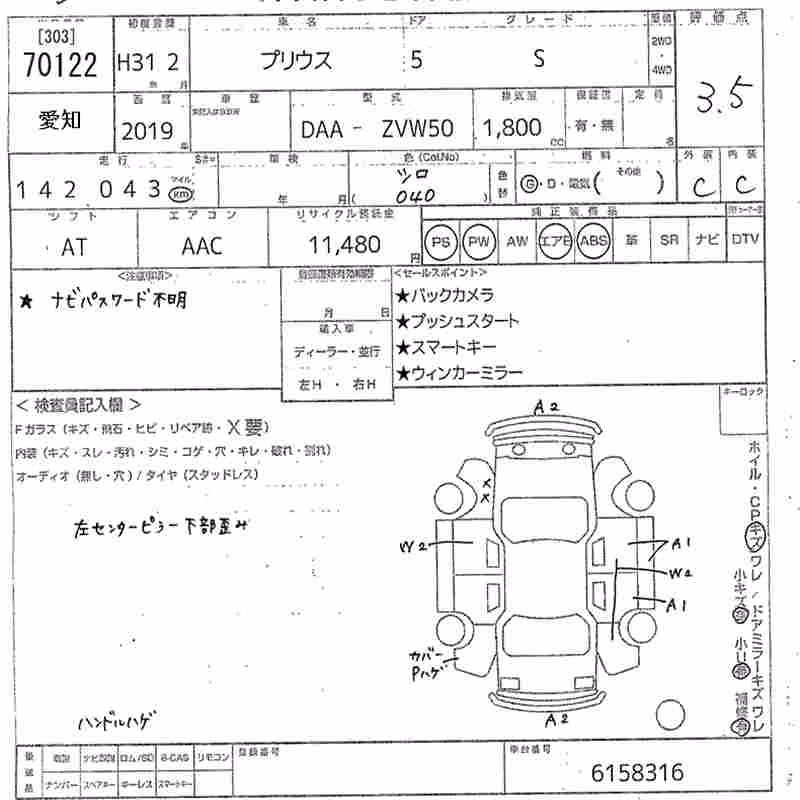 [303]
70122
愛知
初度登録
H31 2
年 月
車名
プリウス
ドア
5
グレード
S
2WD
・
4WD
評価点
3.5
2019
年
車歴
型式
DAA - ZVW50
排気量
1,800
CC
保証書
有・無
定員
名
走行
142,043
マイル
km
車検
年 月
色(Col.No)
シロ
(040)
色替
燃料
G・D・電気(その他 )
外装
C
内装
C
シフト
AT
エアコン
AAC
リサイクル預託金
11,480
円
純正装備品
PS PW AW エアB ABS 革 SR ナビ DTV
<注意事項>
★ ナビパスワード不明
月 日
輸入車
ディーラー・並行
左H ・ 右H
<セールスポイント>
★バックカメラ
★プッシュスタート
★スマートキー
★ウィンカーミラー
<検査員記入欄>
Fガラス(キズ・飛石・ヒビ・リペア跡・X要)
内装(キズ・スレ・汚れ・シミ・コゲ・穴・キレ・破れ・割れ)
オーディオ(無し・穴)/タイヤ(スタッドレス)
左センターピラー下部歪み
ハンドルハゲ
キーロック
A2
X
X
W2
A1
W2
A1
カバー
Pハゲ
A2
ホイル・CPキズワレ/ドアミラーキズワレ
小キズ有 小U有 補修有
欠品
取説 ナビ取説 ロム/SD B-CAS リモコン
ナンバー スペアキー キーレス スマートキー
登録番号
車台番号
6158316